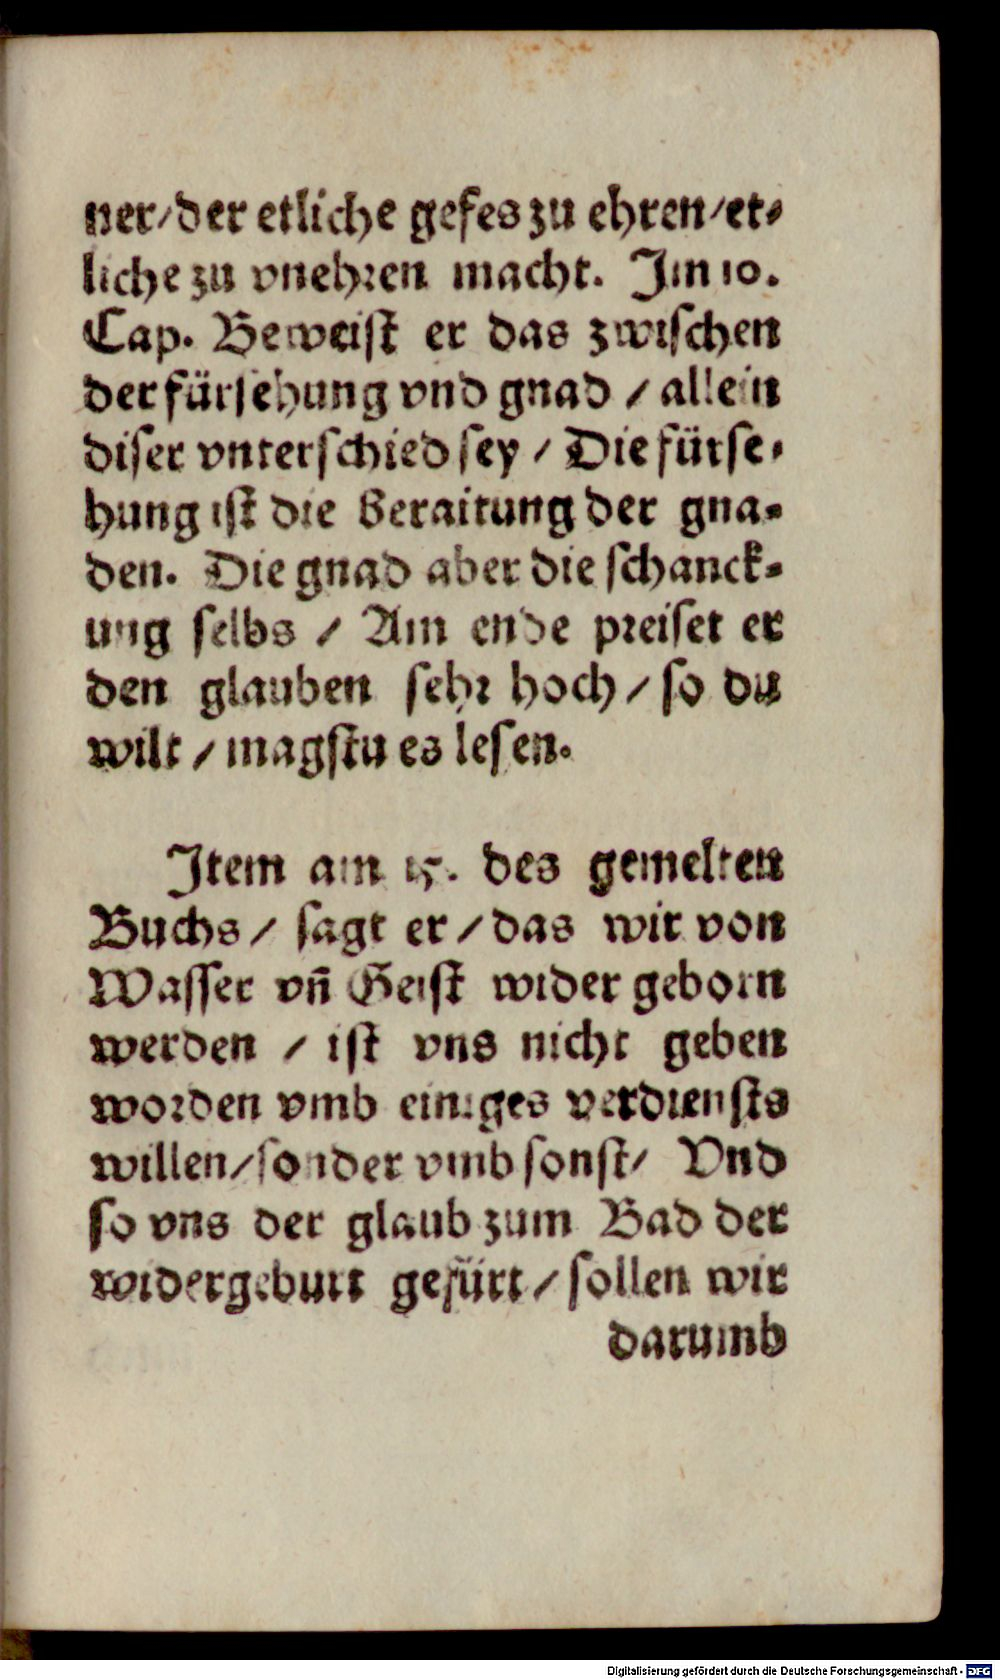 ner/der etliche gefes zu ehren/et-
liche zu vnehren macht. Jm 10.
Cap. Beweist er das zwischen
der fürsehung vnd gnad / allein
diser vnterschied sey / Die fürse-
hung ist die beraitung der gna-
den. Die gnad aber die schanck-
ung selbs / Am ende preiset er
den glauben sehr hoch / so du
wilt / magstu es lesen.
Jtem am 15. des gemelten
Buchs / sagt er / das wir von
Wasser vñ Geist wider geborn
werden / ist vns nicht geben
worden vmb einiges verdiensts
willen/sonder vmb sonst/ Vnd
so vns der glaub zum Bad der
widergeburt gefürt / sollen wir
darumb
Digitalisierung gefördert durch die Deutsche Forschungsgemeinschaft - DFG